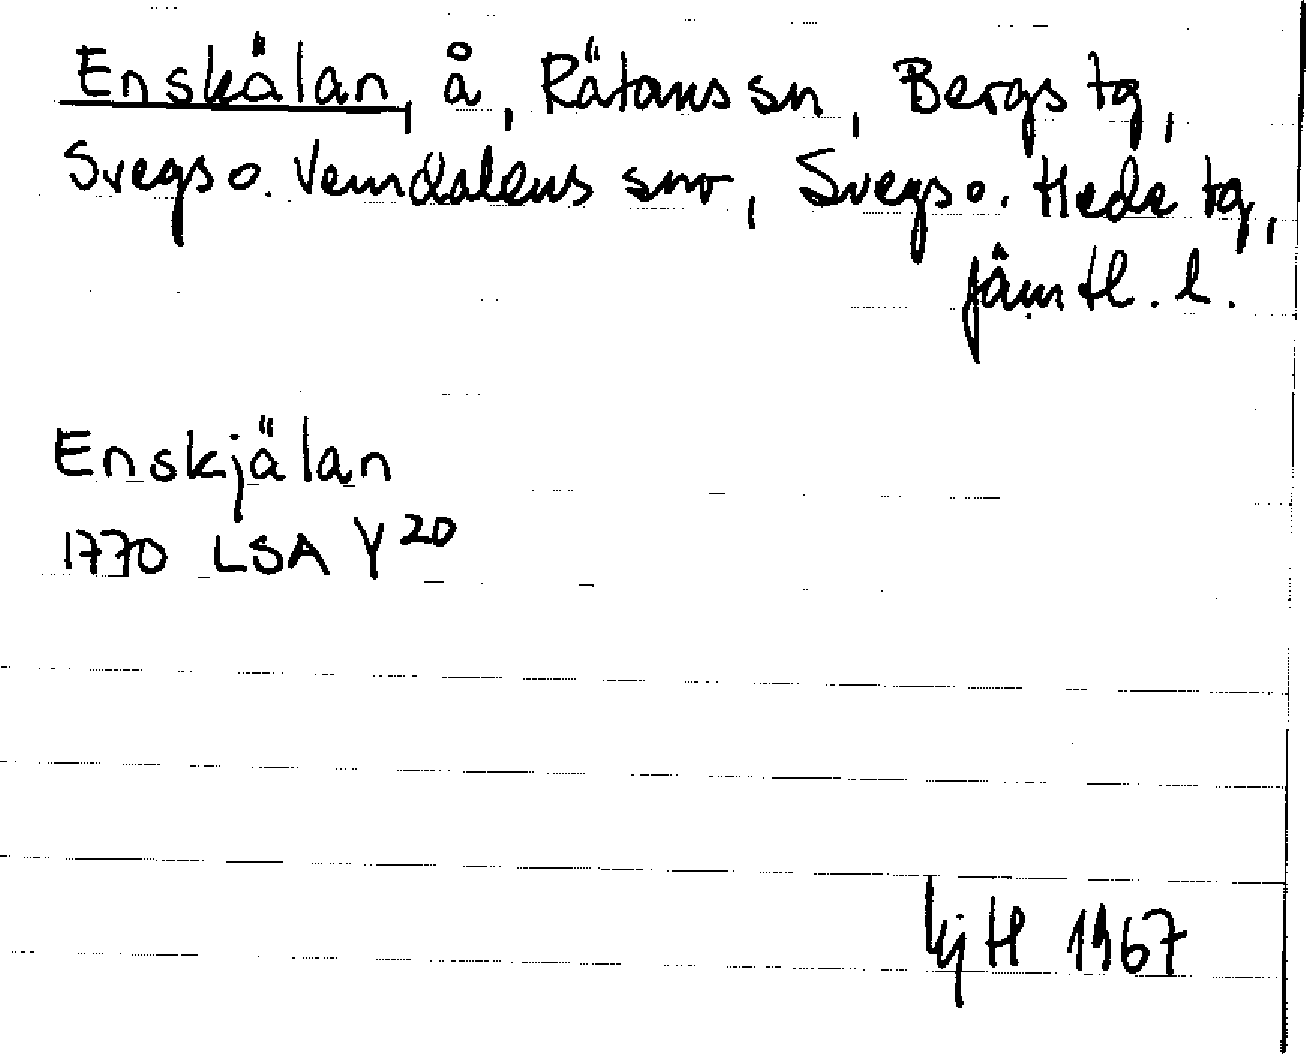 Enskälan, å, Rätans sn, Bergs tg,
Svegs o. Vemdalens snr, Svegs o. Hede tg,
Jämtl. l.
Enskjälan
1770 LSA Y 20
KjH 1967